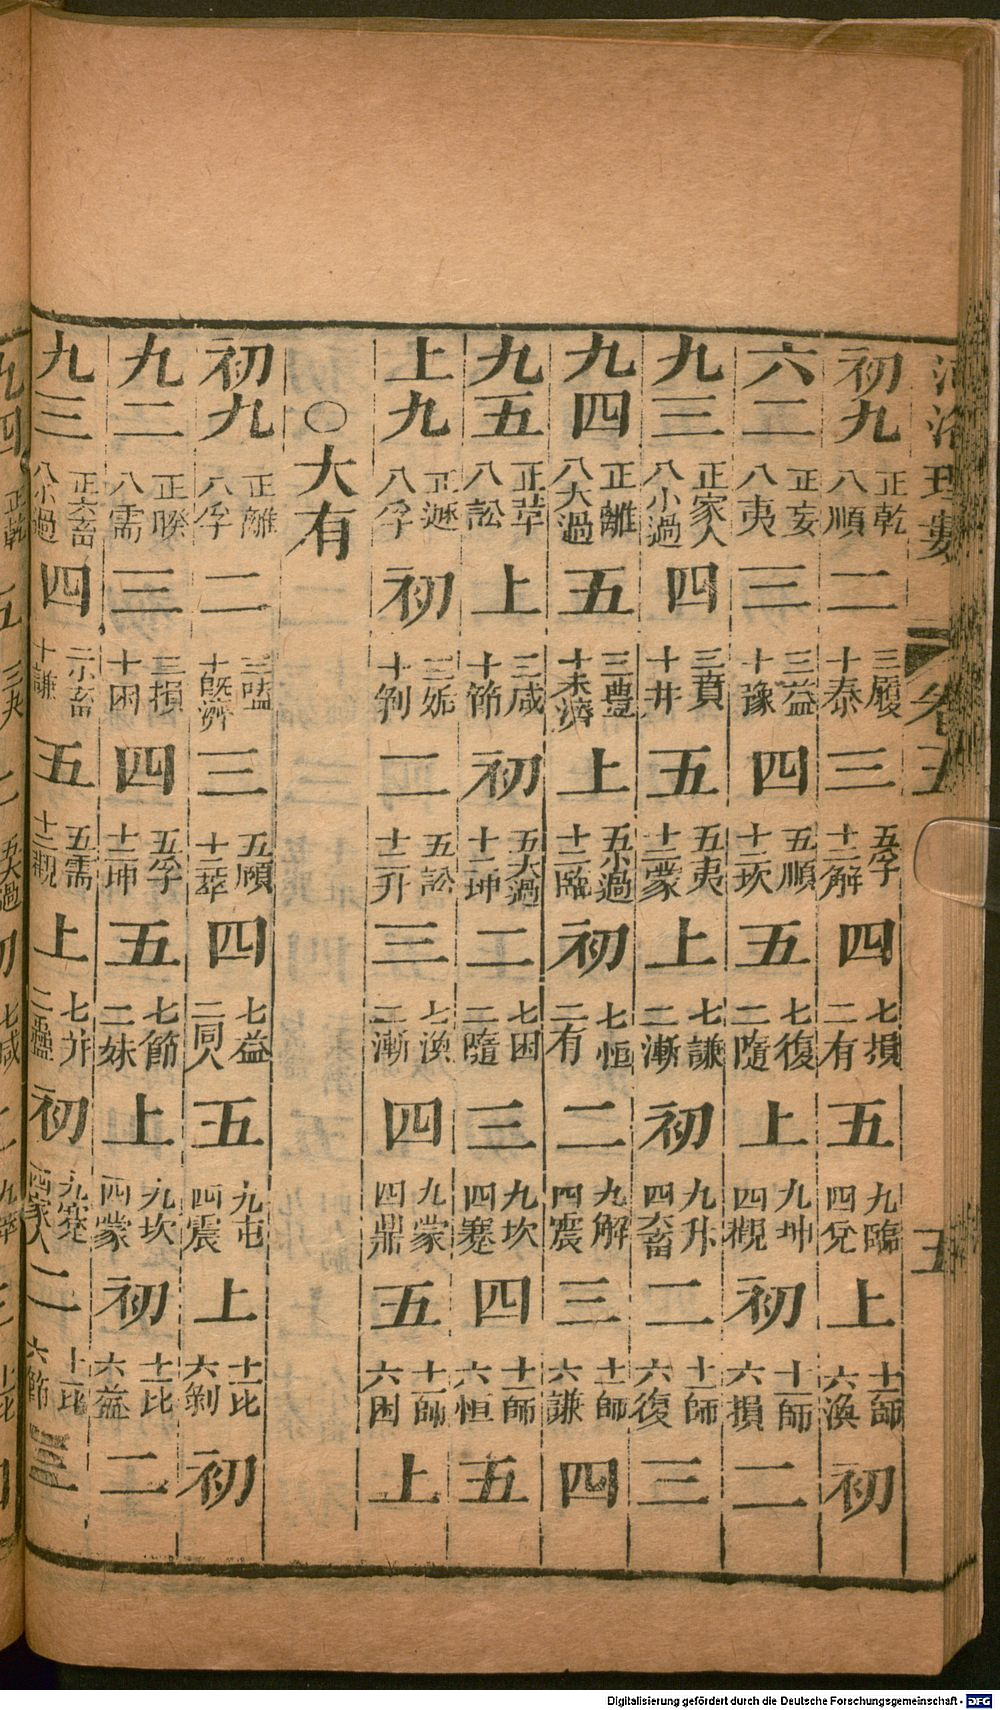 河洛理數 卷五 五
初九 正乾 八順 二 三履 十泰 三 五孚 十二解 四 七損 二有 五 九臨 四兌 上 十一師 六渙 初
六二 正妄 八夷 三 三益 十豫 四 五順 十二坎 五 七復 二隨 上 九坤 四觀 初 十一師 六損 二
九三 正家人 八小過 四 三賁 十井 五 五夷 十二蒙 上 七謙 二漸 初 九升 四大畜 二 十一師 六復 三
九四 正離 八大過 五 三豐 十未濟 上 五小過 十二臨 初 七恒 二有 二 九解 四震 三 十一師 六謙 四
九五 正萃 八訟 上 三咸 十節 初 五大過 十二坤 二 七困 二隨 三 九坎 四蹇 四 十一師 六恒 五
上九 正遯 八孚 初 三姤 十剝 二 五訟 十二升 三 七渙 二漸 四 九蒙 四鼎 五 十一師 六困 上
○大有
初九 正離 八孚 二 三嗑 十既濟 三 五頤 十二萃 四 七益 二同人 五 九屯 四震 上 十一比 六剝 初
九二 正睽 八需 三 三損 十困 四 五孚 十二坤 五 七節 二妹 上 九坎 四蒙 初 十一比 六益 二
九三 正大畜 八小過 四 三小畜 十謙 五 五需 十二觀 上 七井 二蠱 初 九蹇 四家人 二 十一比 六節 三
九四 正乾 五 三夬 五大過 初 七咸 二 九萃 三 十一比
Digitalisierung gefördert durch die Deutsche Forschungsgemeinschaft - DFG